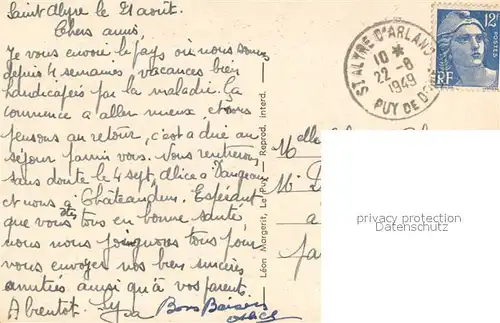 Saint Alyre le 21 août.
Chers amis,
Je vous envoie le pays où nous sommes
depuis 4 semaines, vacances bien
handicapées par la maladie. Ça
commence a aller mieux, et nous
pensons au retour, c'est a dire au
séjour parmi vous. Nous rentrerons
sans doute le 4 sept, Alice à Dangeau
et nous à Châteaudun. Espérant
que vous êtes tous en bonne santé,
nous nous joignons tous pour
vous envoyer nos bien sincères
amitiés ainsi qu'à vos parents.
A bientôt.
Bons Baisers
Alice
Léon Margerit, Le Puy — Reprod. interd.
ST ALYRE D'ARLANC
10 *
22-8
1949
PUY DE DOME
12F
POSTES
RF
Melle
M. D
a
par
privacy protection
Datenschutz